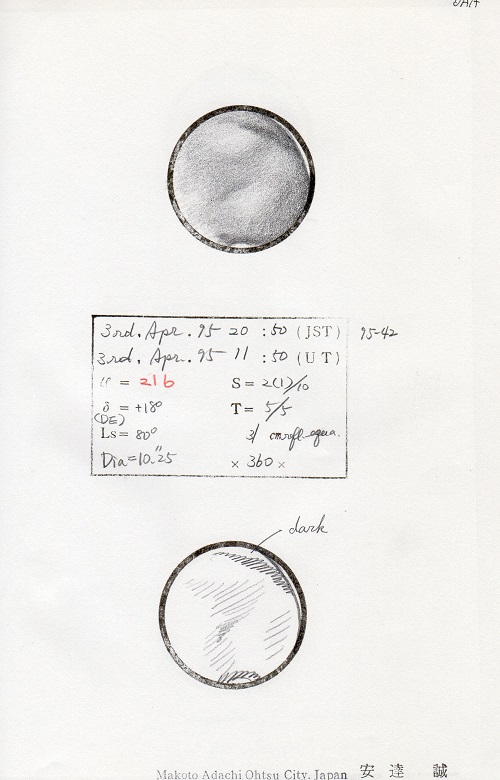 3rd. Apr. 95 20 : 50 (JST) 95-42
3rd. Apr. 95 11 : 50 (UT)
ω = 216 S = 2(1)/10
δ = +18° T = 5/5
(DE)
Ls = 80°
Dia = 10."25 × 360 ×
dark
Makoto Adachi Ohtsu City, Japan 安達 誠